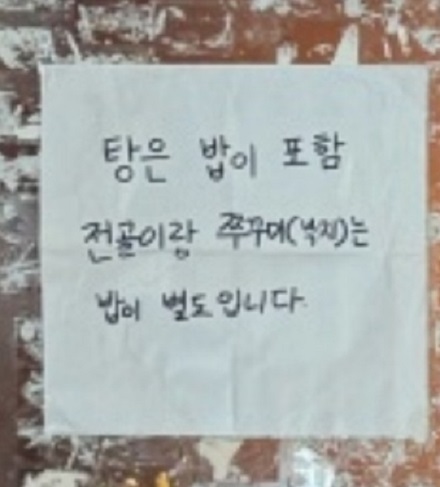 탕은 밥이 포함
전골이랑 쭈꾸미(낙지)는
밥이 별도입니다.